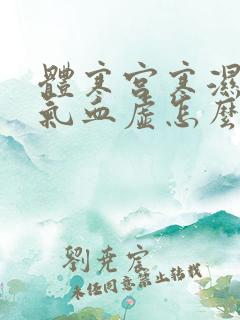 體寒宮寒濕
氣血虛怎麼
劉堯宸
未經同意禁止轉載